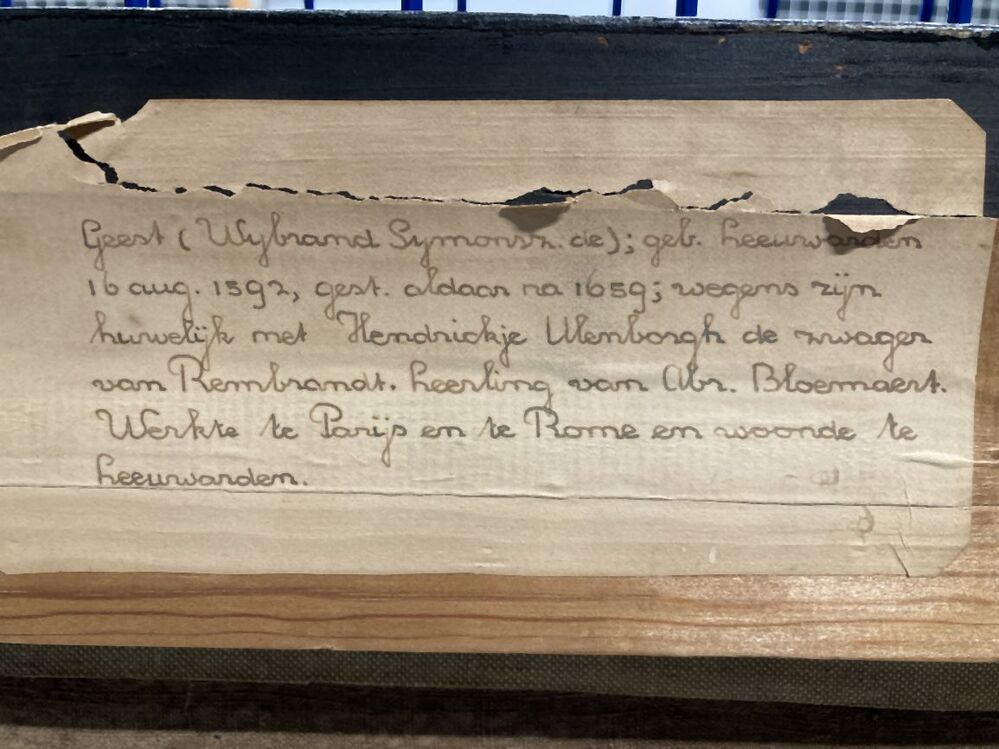 Geest (Wybrand Symonsz. de); geb. Leeuwarden
16 aug. 1592, gest. aldaar na 1659; wegens zijn
huwelijk met Hendrickje Ulenborgh de zwager
van Rembrandt. Leerling van Abr. Bloemaert.
Werkte te Parijs en te Rome en woonde te
Leeuwarden.